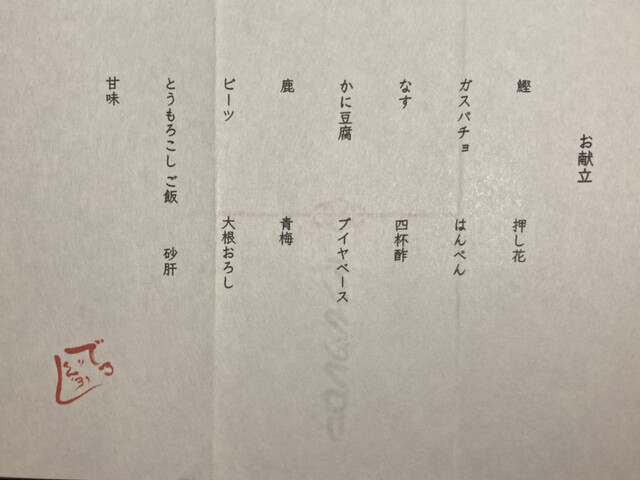 お献立
鰹 押し花
ガスパチョ はんぺん
なす 四杯酢
かに豆腐 ブイヤベース
鹿 青梅
ビーツ 大根おろし
とうもろこしご飯 砂肝
甘味